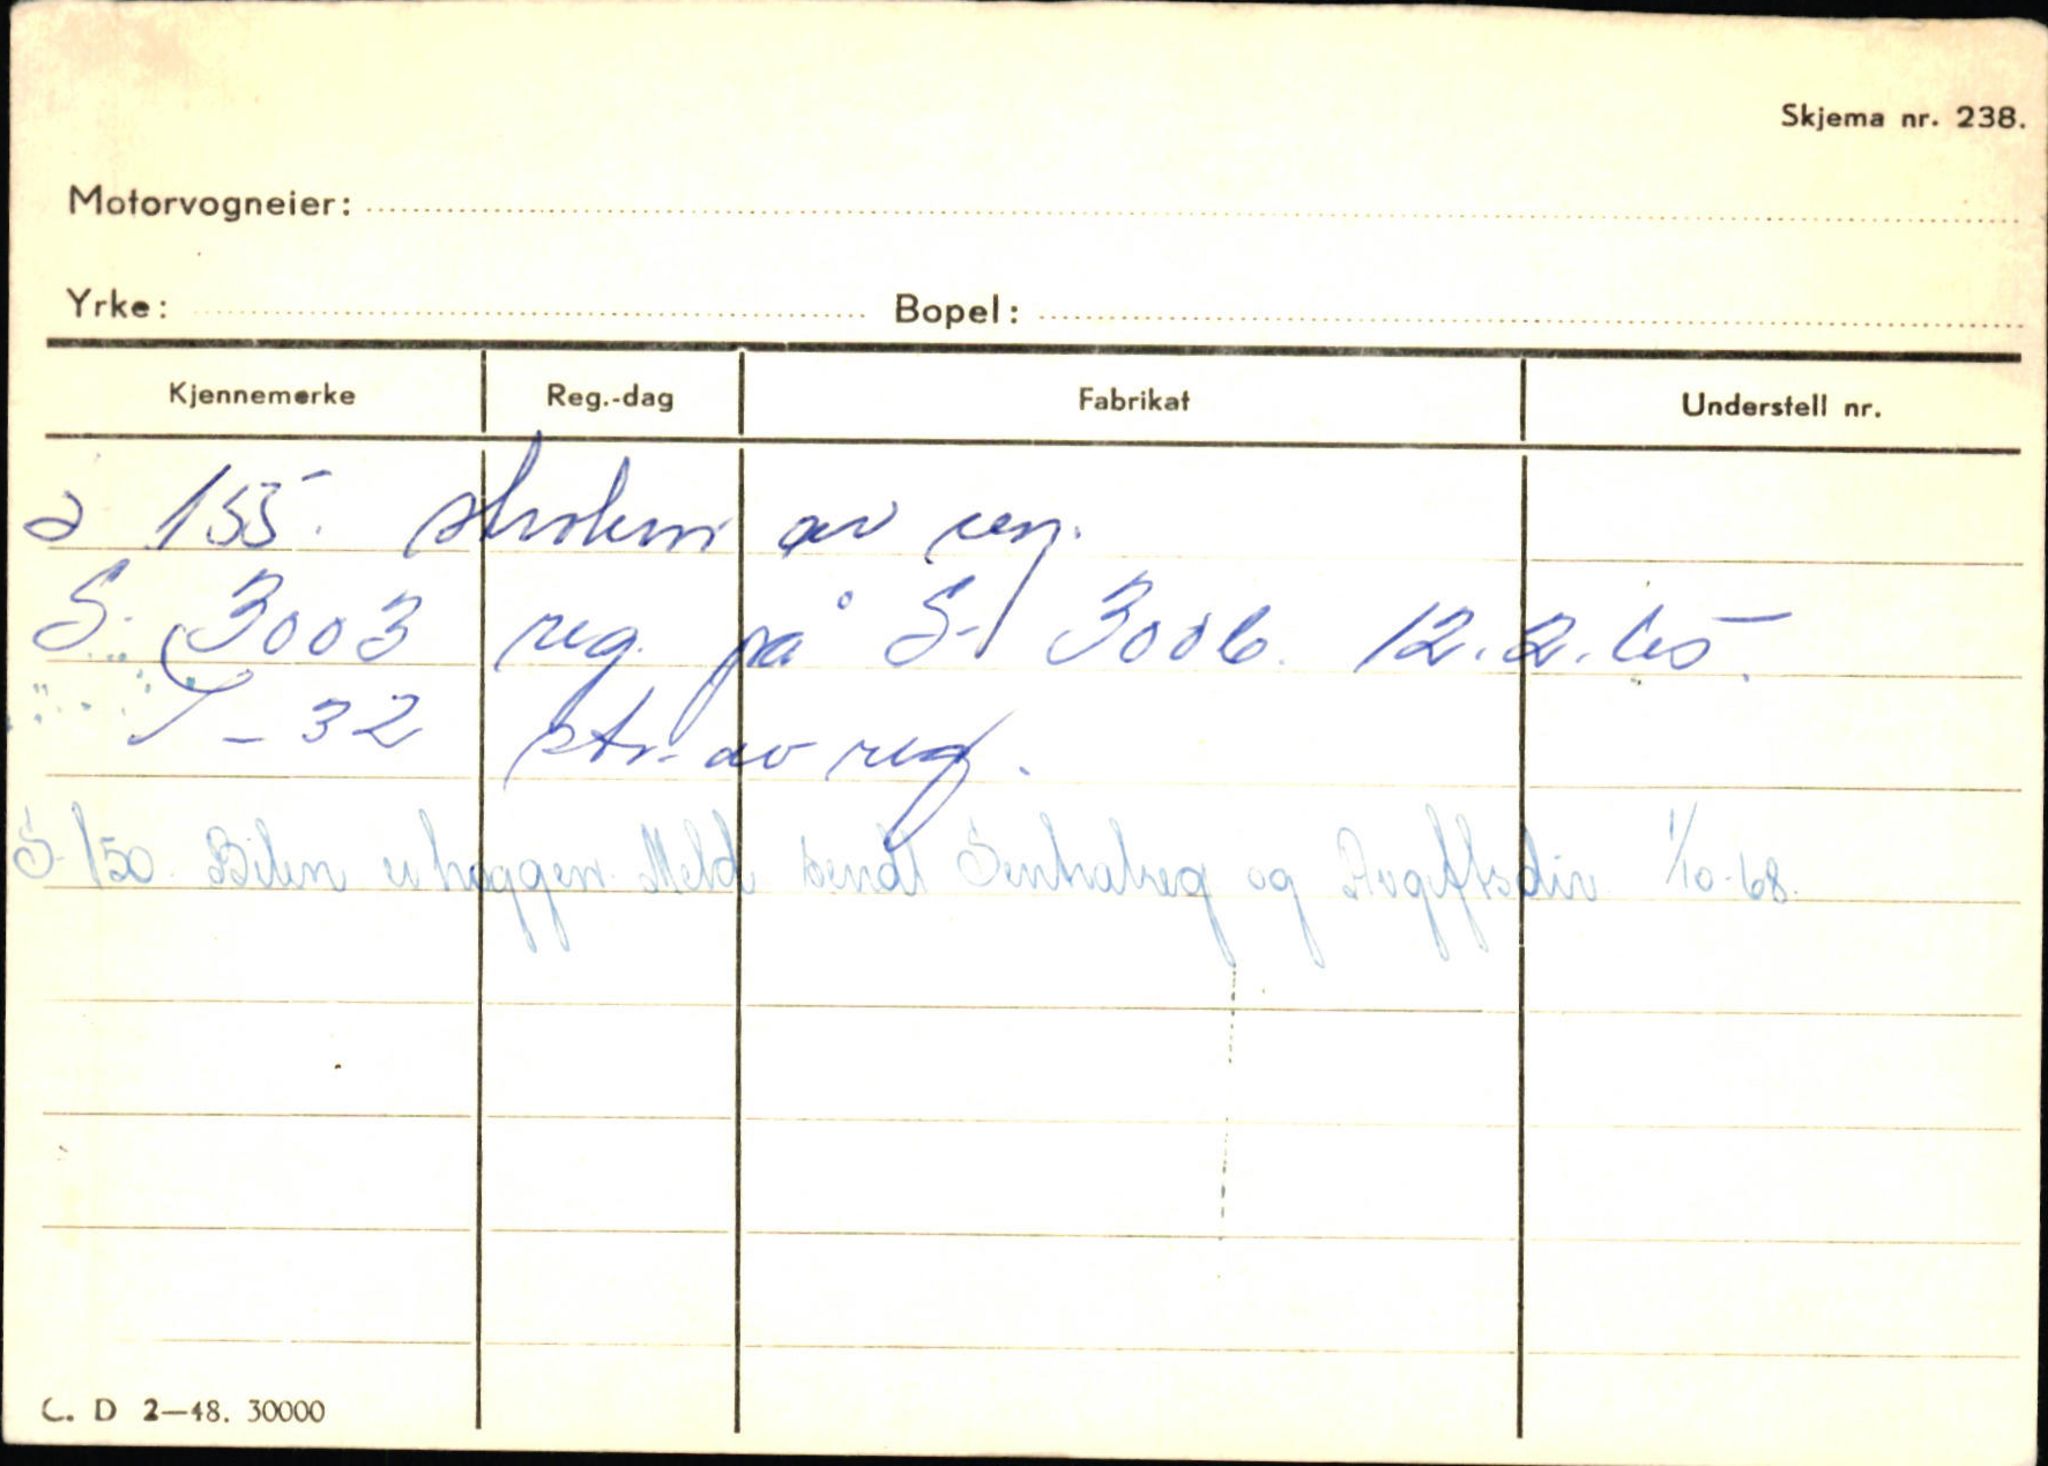 Skjema nr. 238.
Motorvogneier:
Yrke: Bopel:
Kjennemerke Reg.-dag Fabrikat Understell nr.
155. av reg.
S- 3003 reg. på S- 3006. 12.2.65.
S-32 str. av reg.
S-150. Bilen er hoggen. Meld sendt Sentralreg og Avgiftsdir 1/10-68.
C. D 2—48. 30000